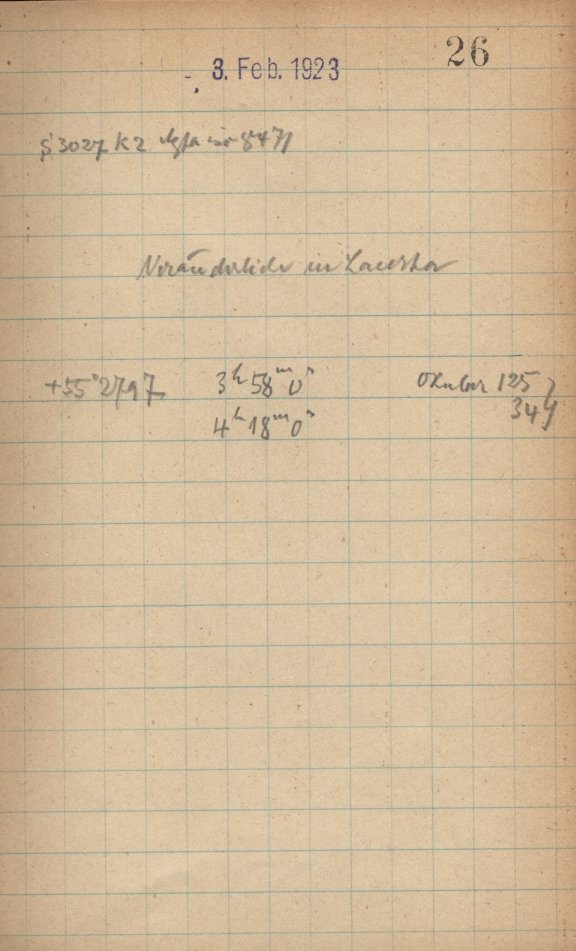 26
3. Feb. 1923
S 3027 K 2 Agfa iso 8471
Veränderliche in Lacerta
+55°2797 3ʰ58ᵐ0ˢ Okular 125
4ʰ18ᵐ0ˢ 34